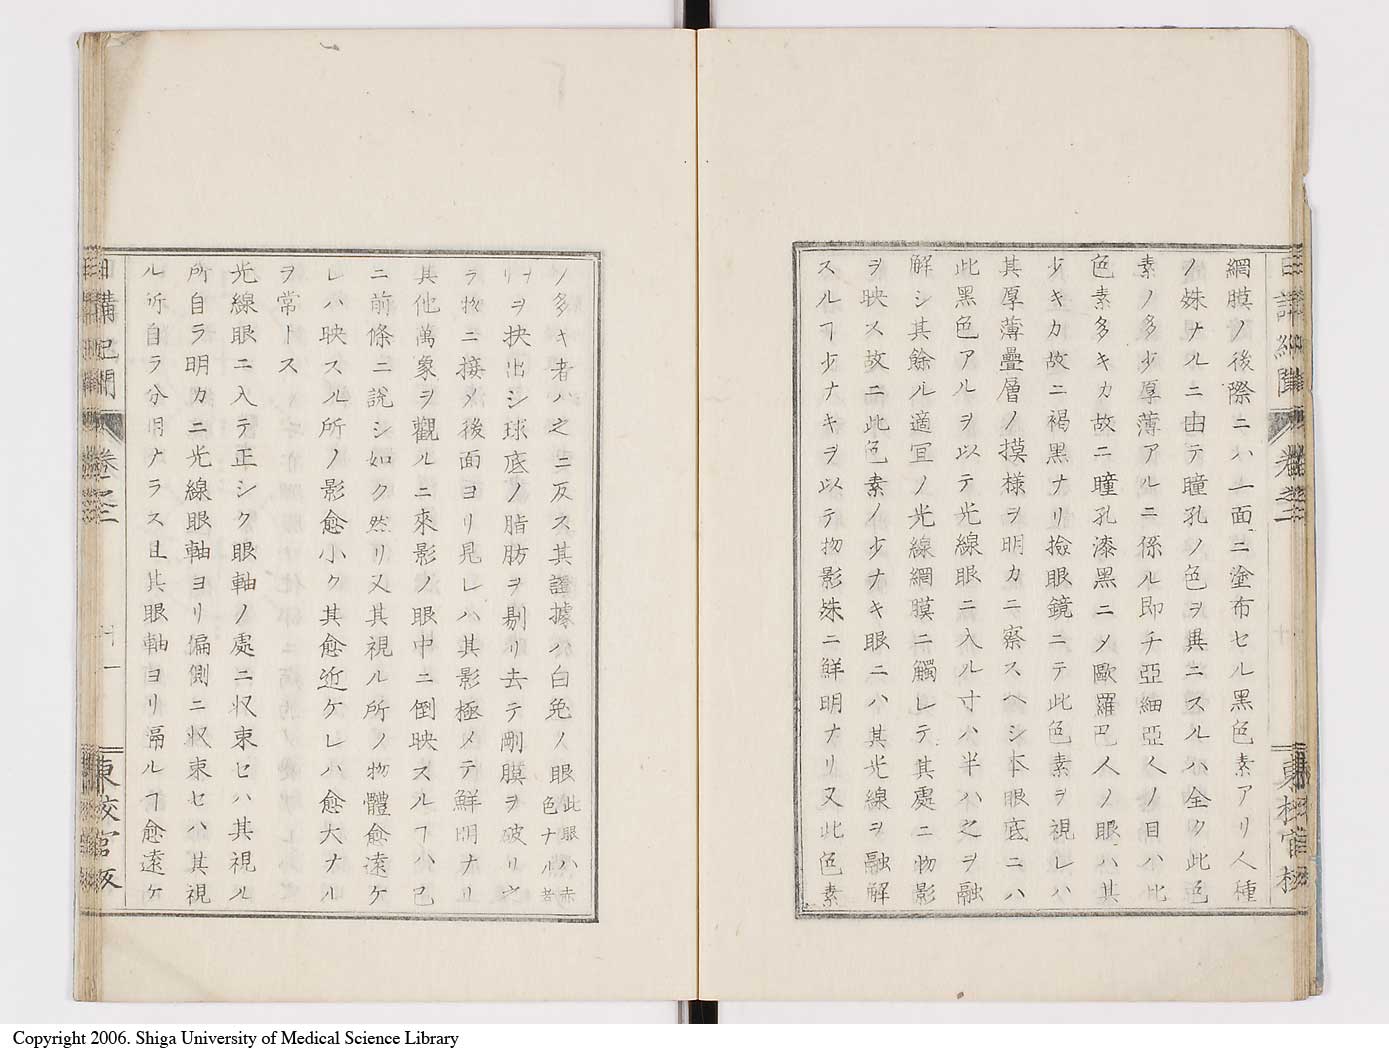 網膜ノ後際ニハ一面ニ塗布セル黑色素アリ人種
ノ殊ナルニ由テ瞳孔ノ色ヲ異ニスルハ全ク此色
素ノ多少厚薄アルニ係ル即チ亞細亞人ノ目ハ此
色素多キカ故ニ瞳孔漆黑ニメ歐羅巴人ノ眼ハ其
少キカ故ニ褐黑ナリ撿眼鏡ニテ此色素ヲ視レハ
其厚薄疊層ノ摸樣ヲ明カニ察スヘシ本眼底ニハ
此黑色アルヲ以テ光線眼ニ入ル寸ハ半ハ之ヲ融
解シ其餘ル適宜ノ光線網膜ニ觸レテ其處ニ物影
ヲ映ス故ニ此色素ノ少ナキ眼ニハ其光線ヲ融解
スルヿ少ナキヲ以テ物影殊ニ鮮明ナリ又此色素
ノ多キ者ハ之ニ反ス其證據ハ白兔ノ眼 此眼ハ赤色ナル者
リヲ抉出シ球底ノ脂肪ヲ剔リ去テ剛膜ヲ破リ之
ラ物ニ接メ後面ヨリ見レハ其影極メテ鮮明ナリ
其他萬象ヲ觀ルニ來影ノ眼中ニ倒映スルヿハ已
ニ前條ニ說シ如ク然リ又其視ル所ノ物體愈遠ケ
レハ映スル所ノ影愈小ク其愈近ケレハ愈大ナル
ヲ常トス
光線眼ニ入テ正シク眼軸ノ處ニ収束セハ其視ル
所自ラ明カニ光線眼軸ヨリ偏側ニ収束セハ其視
ル所自ラ分明ナラス且其眼軸ヨリ隔ルヿ愈遠ケ
卷之二
十一
東校官板
Copyright 2006. Shiga University of Medical Science Library